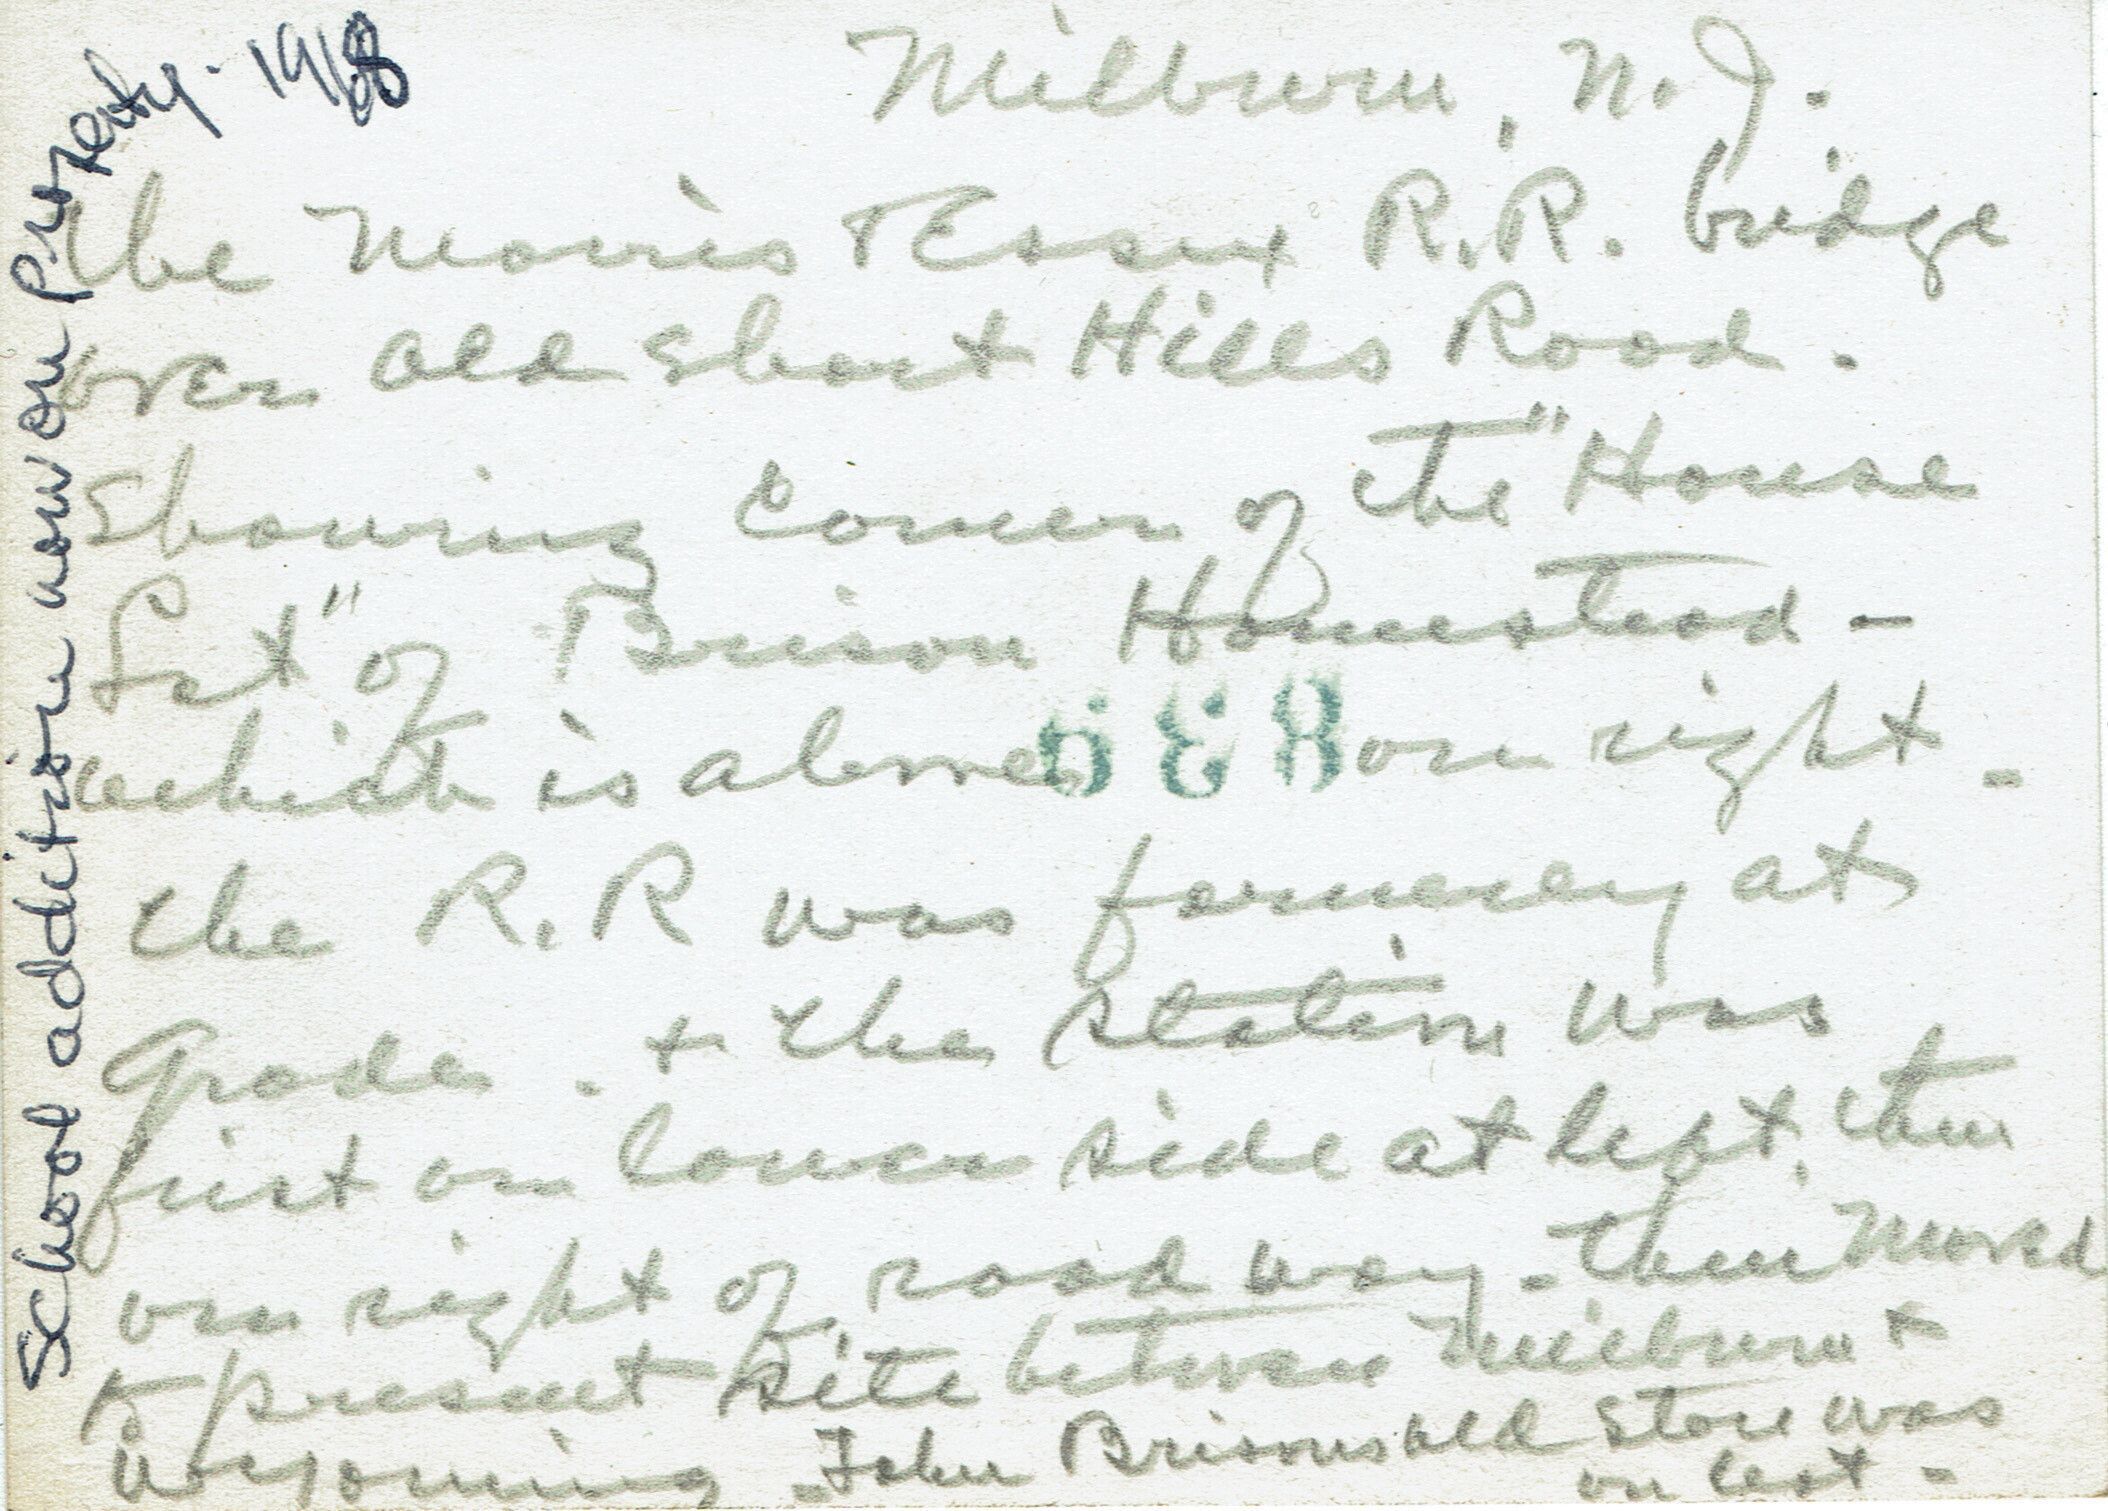 Milburn, N.J.
The Morris & Essex R.R. bridge
over old Short Hills Road.
Showing corner of the "House
Lot" of Brison Homestead -
which is above on right -
the R.R was formerly at
Grade. + the station was
first on lower side at left, then
on right of road way - then moved
to present site between Milburn +
Wyoming - John Brisons old store was
on left -
638
School addition now on property - 1968